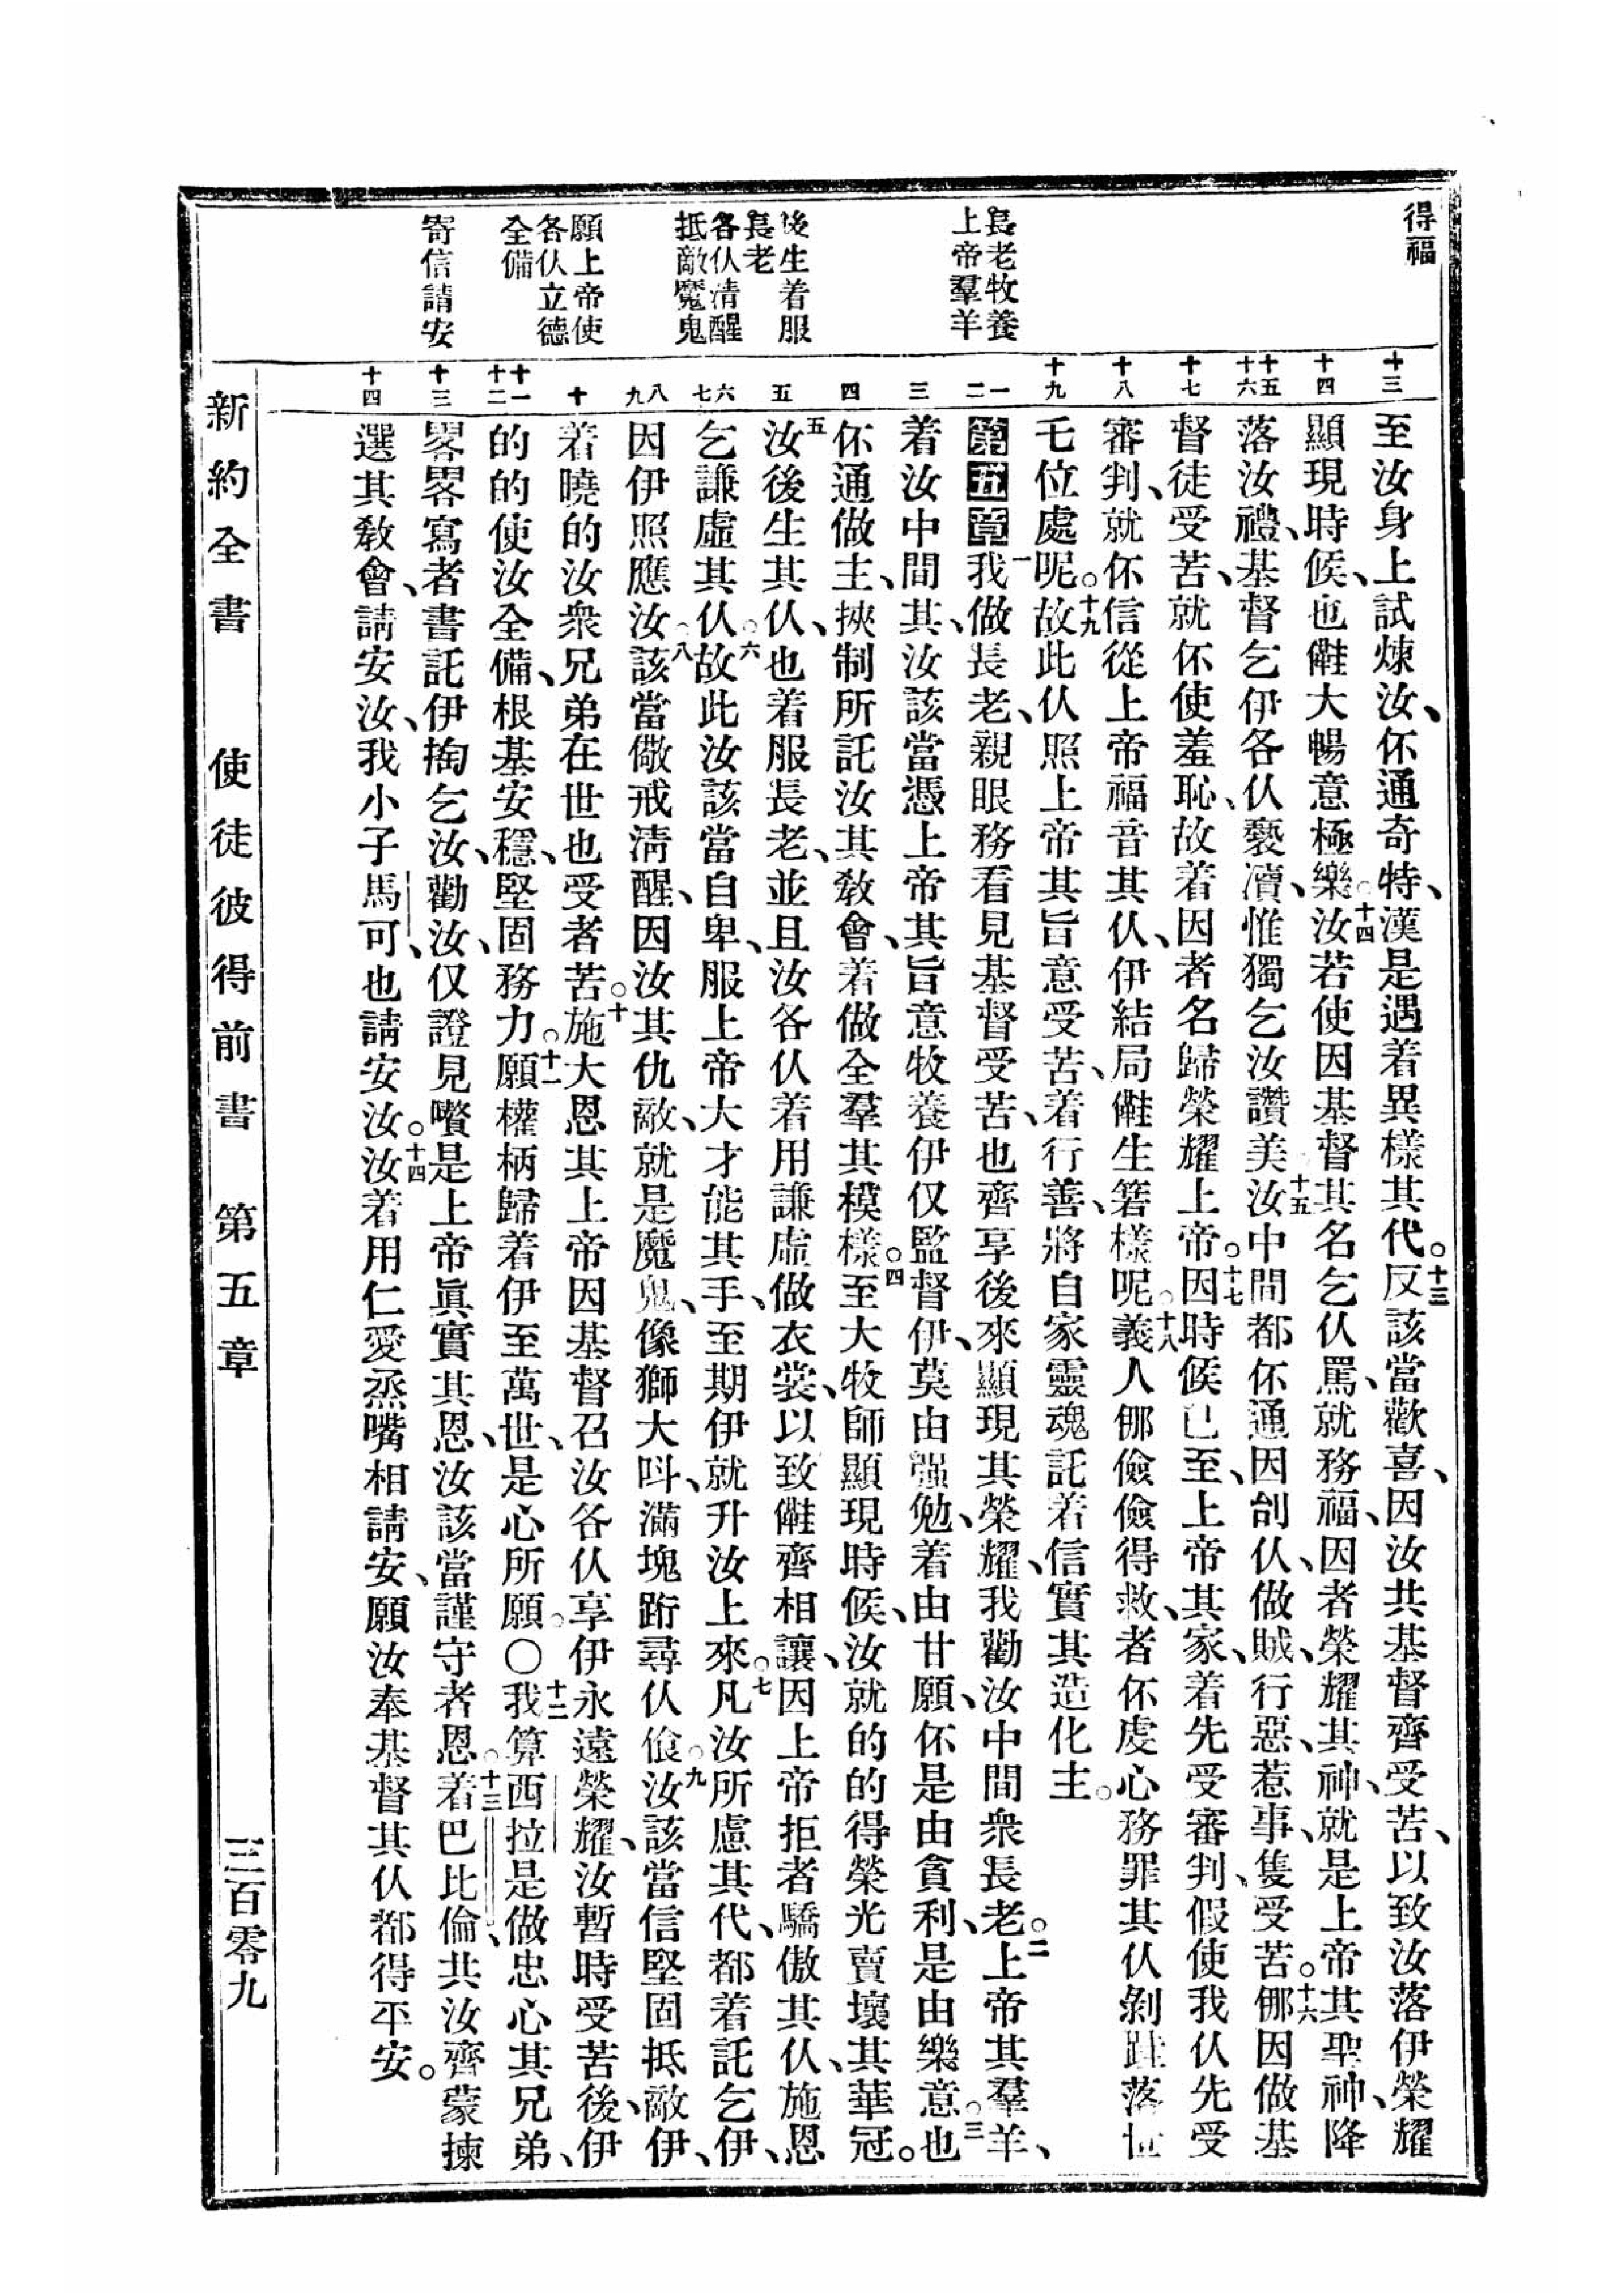 得福
長老牧養
上帝羣羊
後生着服
長老
各仈清醒
抵敵魔鬼
願上帝使
各仈立德
全備
寄信請安
十三
十四
十五
十六
十七
十八
十九
一
二
三
四
五
六
七
八
九
十
十一
十二
十三
十四
至汝身上試煉汝、伓通奇特、漢是遇着異樣其代。十三反該當歡喜、因汝共基督齊受苦、以致汝落伊榮耀
顯現時候、也㒕大暢意極樂。十四汝若使因基督其名乞仈罵、就務福、因者榮耀其神、就是上帝其聖神、降
落汝禮、基督乞伊各仈褻瀆、惟獨乞汝讚美。十五汝中間都伓通因刣仈、做賊、行惡、惹事、隻受苦。十六㑚因做基
督徒受苦、就伓使羞恥、故着因者名歸榮耀上帝。十七因時候已至、上帝其家、着先受審判、假使我仈先受
審判、就伓信從上帝福音其仈、伊結局㒕生箬樣呢。十八義人㑚儉儉得救、者伓虔心務罪其仈、剝𨅏落世
乇位處呢。十九故此仈照上帝其旨意受苦、着行善、將自家靈魂託着信實其造化主。
第五章 一我做長老、親眼務看見基督受苦、也齊享後來顯現其榮耀、我勸汝中間衆長老。二上帝其羣羊、
着汝中間其、汝該當憑上帝其旨意牧養伊仅監督伊、莫由强勉、着由甘願、伓是由貪利、是由樂意。三也
伓通做主、挾制所託汝其教會、着做全羣其模樣。四至大牧師顯現時候、汝就的的得榮光賣壞其華冠。
五汝後生其仈、也着服長老、並且汝各仈着用謙虛做衣裳、以致㒕齊相讓、因上帝拒者驕傲其仈、施恩
乞謙虛其仈。六故此汝該當自卑、服上帝大才能其手、至期伊就升汝上來。七凡汝所慮其代、都着託乞伊、
因伊照應汝。八該當儆戒清醒、因汝其仇敵、就是魔鬼、像獅大呌、滿塊跕尋仈偹。九汝該當信堅固抵敵伊、
着曉的汝衆兄弟在世也受者苦。十施大恩其上帝因基督召汝各仈享伊永遠榮耀、汝暫時受苦後、伊
的的使汝全備、根基安穩、堅固務力。十一願權柄歸着伊至萬世、是心所願。〇十二我算西拉是做忠心其兄弟、
畧畧寫者書託伊掏乞汝、勸汝仅證見嚽是上帝眞實其恩、汝該當謹守者恩。十三着巴比倫共汝齊蒙揀
選其教會、請安汝、我小子馬可、也請安汝。十四汝着用仁愛烝嘴相請安、願汝奉基督其仈都得平安。
新約全書 使徒彼得前書 第五章 三百零九